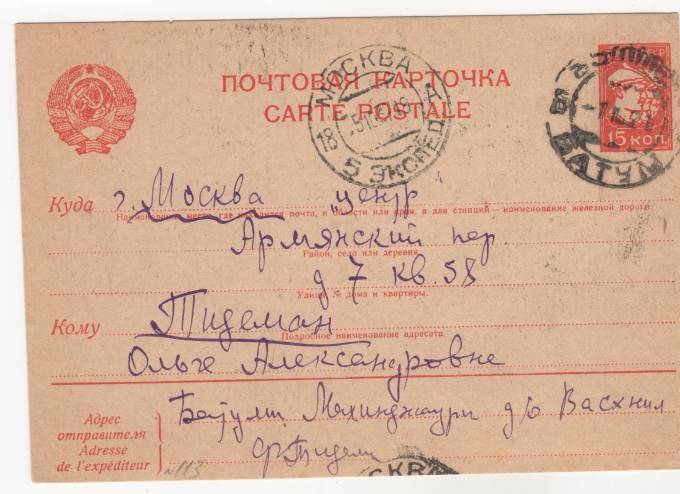 ПОЧТОВАЯ КАРТОЧКА
CARTE POSTALE
МОСКВА
18
5 ЭКСПЕД
БАТУМ
15 КОП.
Куда г. Москва центр
Наименование места, где находится почта, и области или края, а для станций - наименование железной дороги.
Армянский пер.
Район, село или деревня.
д 7 кв. 58
Улица, № дома и квартиры.
Кому Тидеман
Подробное наименование адресата.
Ольге Александровне
Адрес
отправителя
Adresse
de l'expéditeur
Батуми Махинджаури д/о Васхнил
№113
МОСКВА